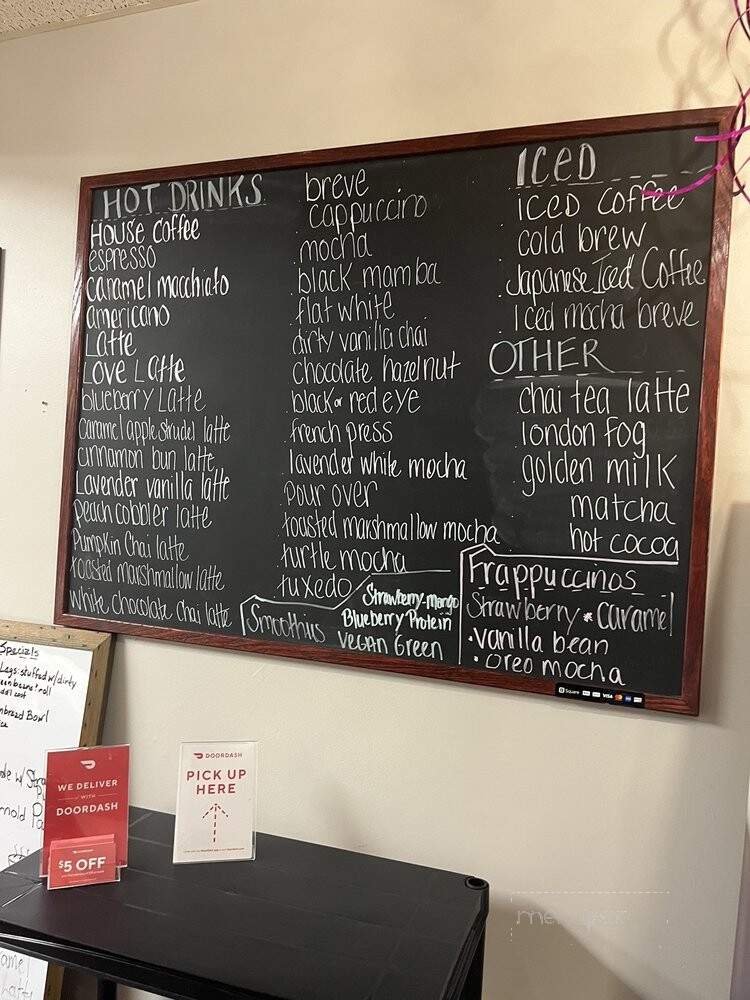 HOT DRINKS
House coffee
espresso
caramel macchiato
americano
Latte
Love Latte
blueberry Latte
caramel apple strudel latte
cinnamon bun latte
Lavender vanilla latte
peach cobbler latte
Pumpkin Chai latte
toasted marshmallow latte
white chocolate chai latte
breve
cappuccino
mocha
black mamba
flat white
dirty vanilla chai
chocolate hazelnut
black or red eye
french press
lavender white mocha
pour over
toasted marshmallow mocha
turtle mocha
tuxedo
Smoothies
Strawberry-mango
Blueberry Protein
vegan Green
ICED
ICED coffee
cold brew
Japanese Iced Coffee
Iced mocha breve
OTHER
chai tea latte
london fog
golden milk
matcha
hot cocoa
Frappuccinos
Strawberry * caramel
• vanilla bean
• oreo mocha
Square
VISA
Specials
Legs: stuffed w/dirty
roll
Bowl
WE DELIVER
WITH
DOORDASH
$5 OFF
DOORDASH
PICK UP
HERE